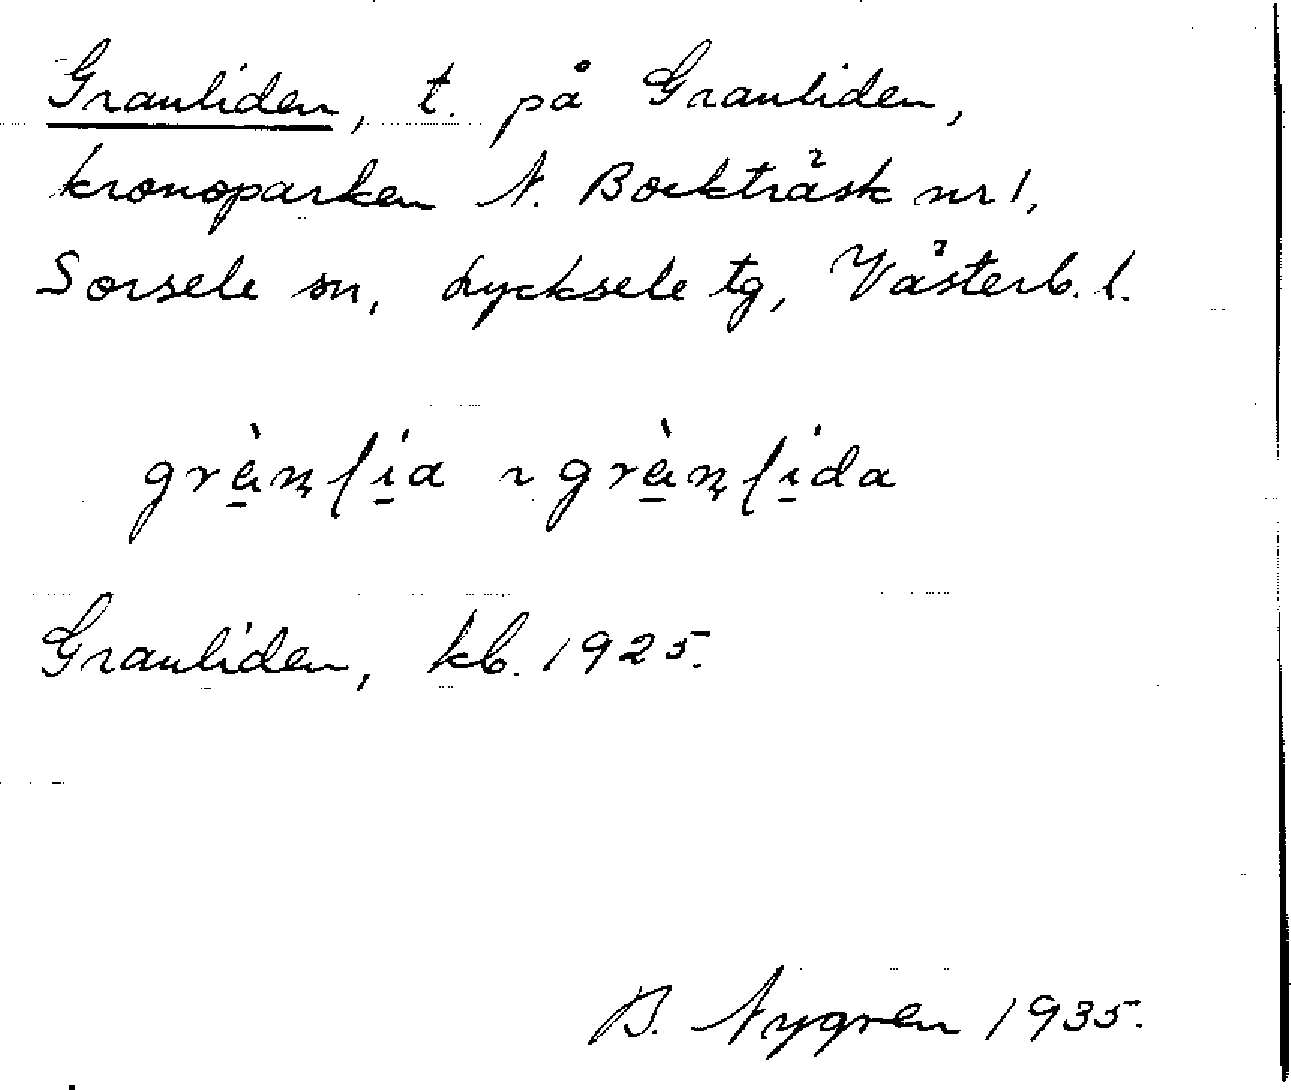 Granliden, t. på Granliden,
kronoparken N. Bockträsk nr 1,
Sorsele sn, Lycksele tg, Västerb. l.
grànlia ~ grànlida
Granliden, kb. 1925.
B. Nygren 1935.